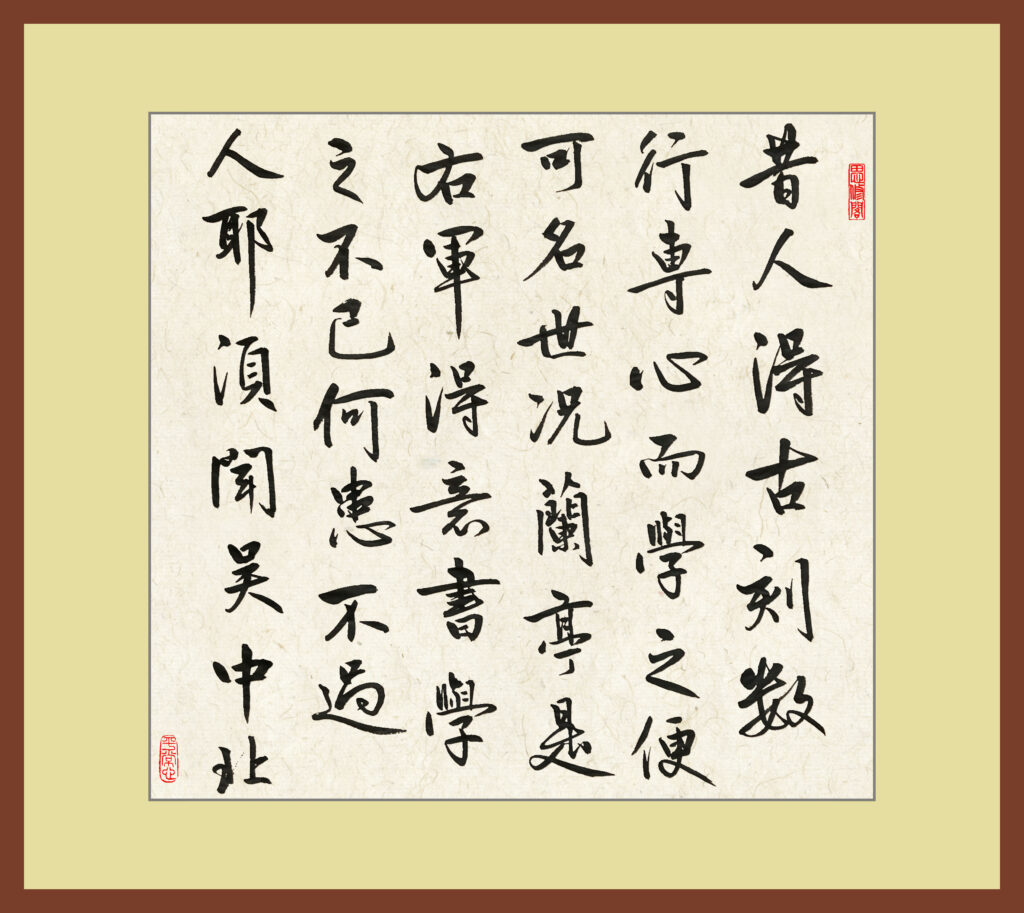 思修閣
昔人得古刻数
行專心而學之便
可名世况蘭亭是
右軍得意書學
之不已何患不過
人耶頃聞吴中北
平常心